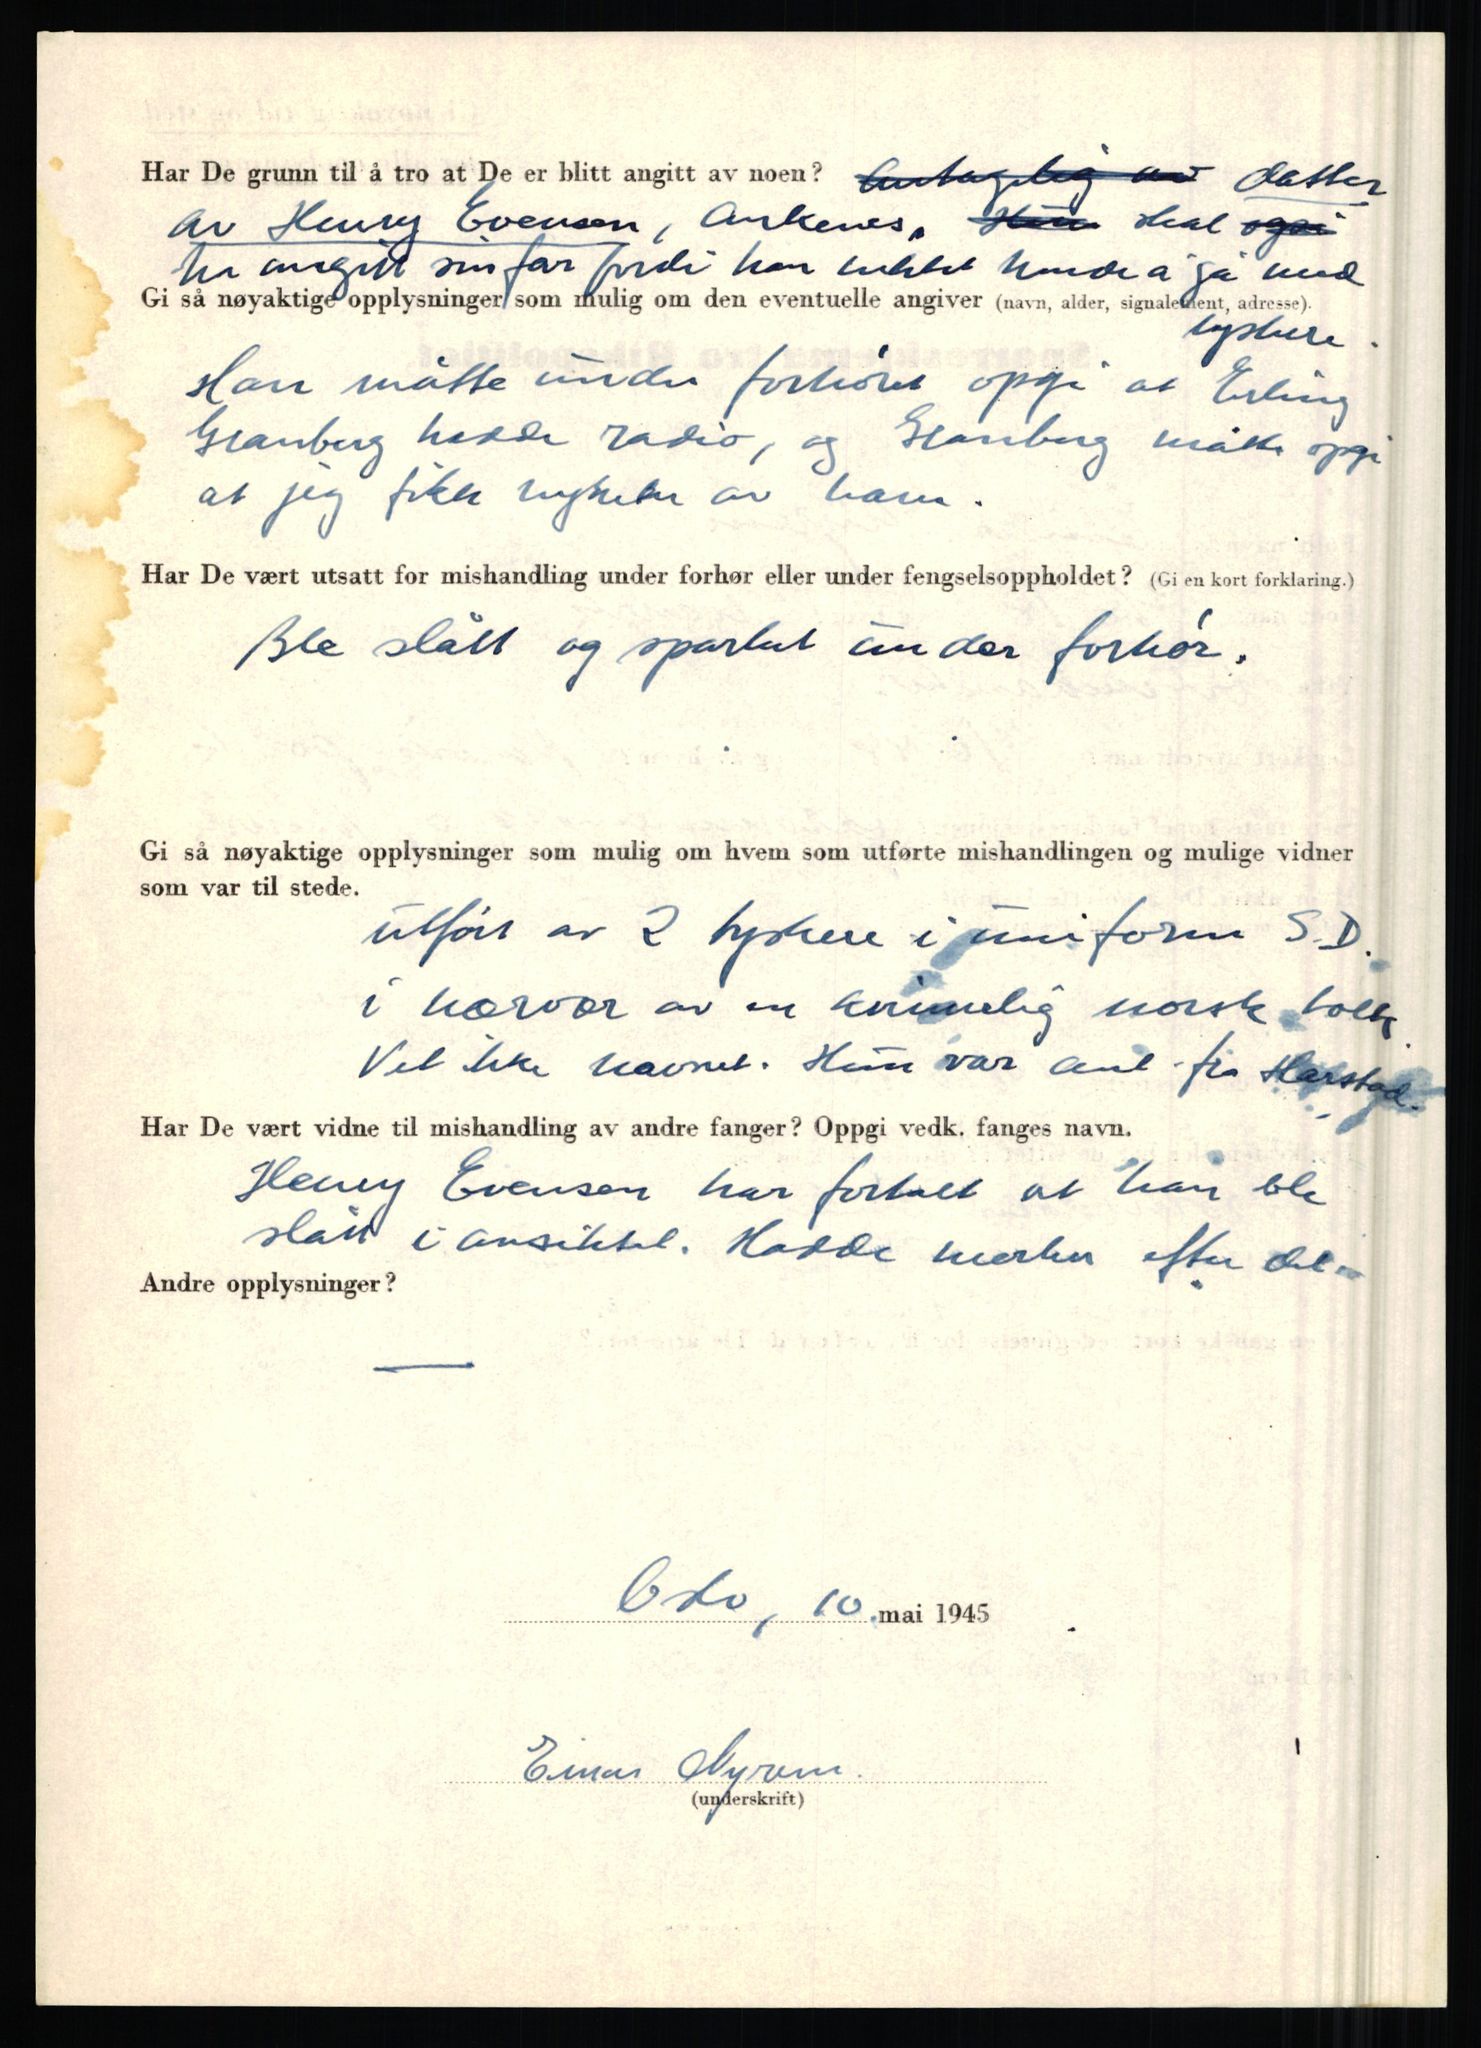 Har De grunn til å tro at De er blitt angitt av noen? Antagelig av datter
av Henry Evensen, Ankenes. Hun skal også
ha angitt sin far fordi han nektet hende å gå med
Gi så nøyaktige opplysninger som mulig om den eventuelle angiver (navn, alder, signalement, adresse).
tyskere.
Han måtte under forhöret opgi at Erling
Granberg hadde radio, og Granberg måtte opgi
at jeg fikk nyheter av ham.
Har De vært utsatt for mishandling under forhør eller under fengselsoppholdet? (Gi en kort forklaring.)
Ble slått og sparket under forhör.
Gi så nøyaktige opplysninger som mulig om hvem som utførte mishandlingen og mulige vidner
som var til stede.
utfört av 2 tyskere i uniform S.D.
i nærvær av en kvinnelig norsk tolk
Vet ikke navnet. Hun var ant. fra Harstad.
Har De vært vidne til mishandling av andre fanger? Oppgi vedk. fanges navn.
Henry Evensen har fortalt at han ble
slått i ansiktet. Hadde merker efter det.
Andre opplysninger?
—
Oslo, 10. mai 1945
Einar
(underskrift)